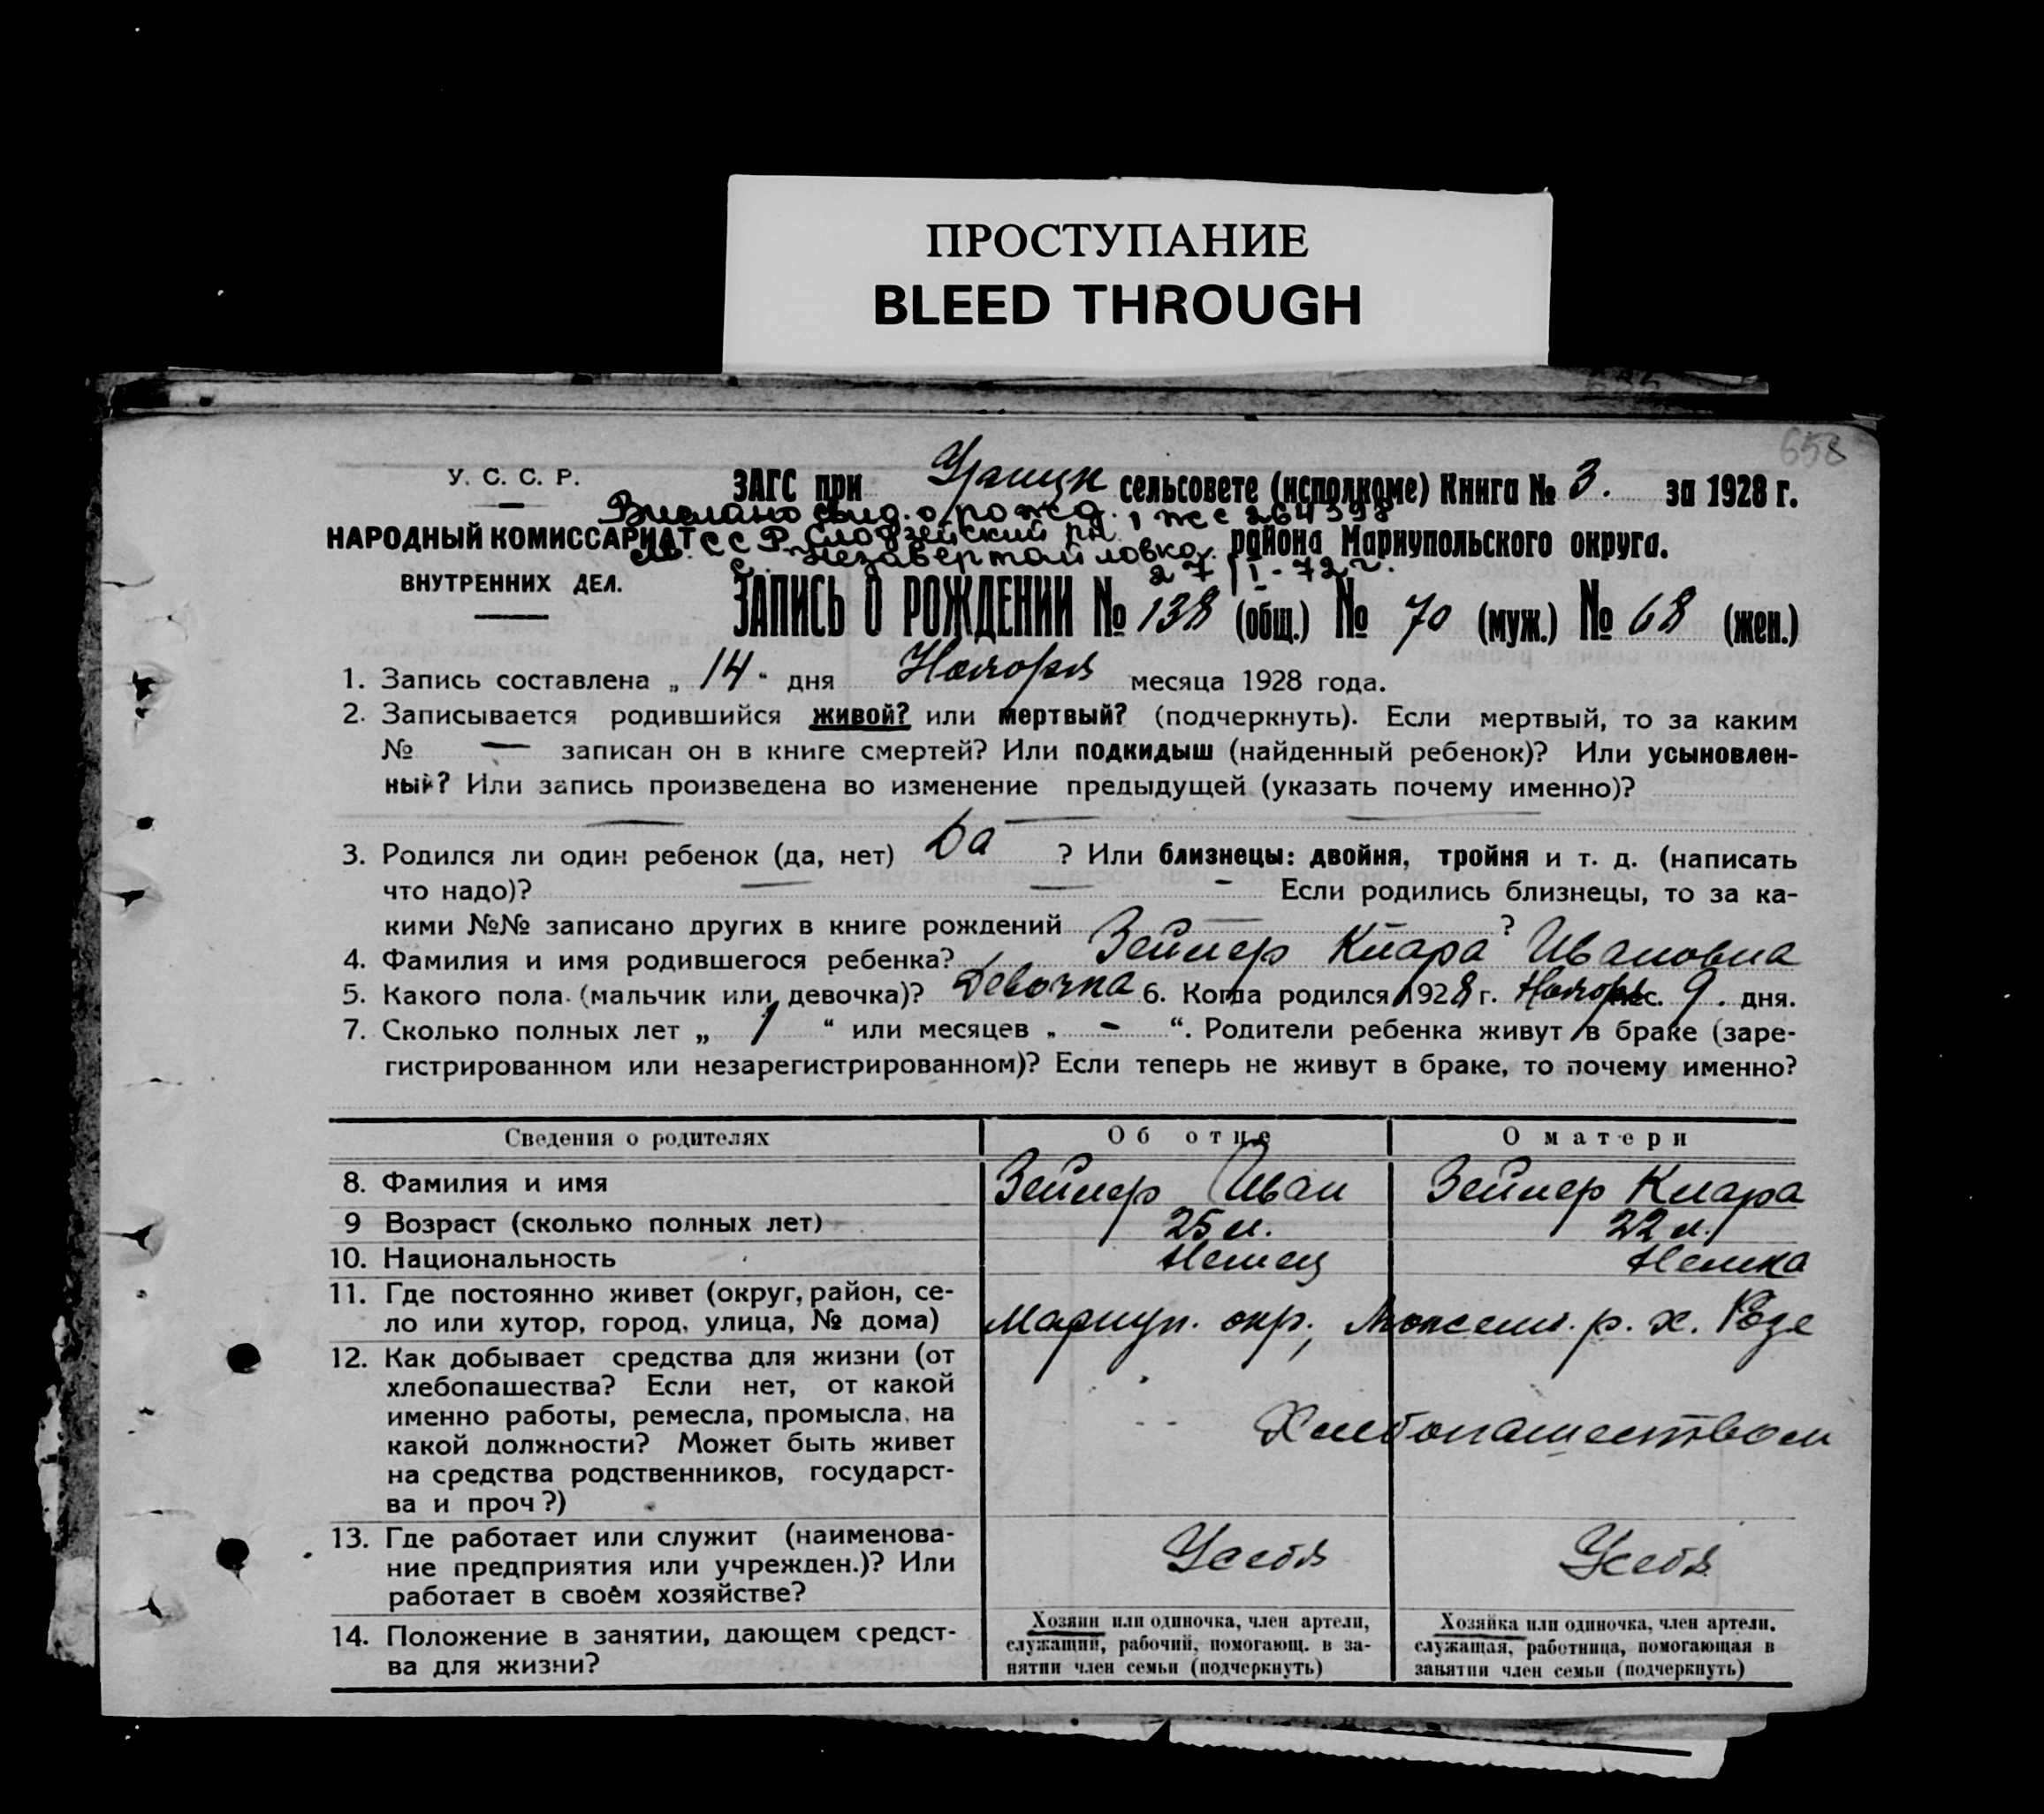 ПРОСТУПАНИЕ
BLEED THROUGH
658
У. С. С. Р.
НАРОДНЫЙ КОМИССАРИАТ
ВНУТРЕННИХ ДЕЛ.
ЗАГС при сельсовете (исполкоме) Книга № 3. за 1928 г.
свид. о рожд. 1 ЖС 264398
ССР Слободзейский рн. района Мариупольского округа.
с. Незавертайловка
27/I-72 г.
ЗАПИСЬ О РОЖДЕНИИ № 138 (общ.) № 70 (муж.) № 68 (жен.)
1. Запись составлена „ 14 " дня Ноября месяца 1928 года.
2. Записывается родившийся живой? или мертвый? (подчеркнуть). Если мертвый, то за каким
№ — записан он в книге смертей? Или подкидыш (найденный ребенок)? Или усыновлен-
ный? Или запись произведена во изменение предыдущей (указать почему именно)?
3. Родился ли один ребенок (да, нет) Да ? Или близнецы: двойня, тройня и т. д. (написать
что надо)? — — - Если родились близнецы, то за ка-
кими №№ записано других в книге рождений — ?
4. Фамилия и имя родившегося ребенка? Зейлер Клара Ивановна
5. Какого пола (мальчик или девочка)? Девочка 6. Когда родился 1928 г. Ноября мес. 9. дня.
7. Сколько полных лет „ 1 “ или месяцев „ - “. Родители ребенка живут в браке (заре-
гистрированном или незарегистрированном)? Если теперь не живут в браке, то почему именно?
Сведения о родителях Об отце О матери
8. Фамилия и имя Зейлер Иван Зейлер Клара
9 Возраст (сколько полных лет) 25 л. 22 л.
10. Национальность Немец Немка
11. Где постоянно живет (округ, район, се-
ло или хутор, город, улица, № дома) Мариуп. окр., р. х. Розе
12. Как добывает средства для жизни (от
хлебопашества? Если нет, от какой
именно работы, ремесла, промысла, на
какой должности? Может быть живет
на средства родственников, государст-
ва и проч?)
Хлебопашеством
13. Где работает или служит (наименова-
ние предприятия или учрежден.)? Или
работает в своём хозяйстве?
У себя У себя
14. Положение в занятии, дающем средст-
ва для жизни?
Хозяин или одиночка, член артели,
служащий, рабочий, помогающ. в за-
нятии член семьи (подчеркнуть)
Хозяйка или одиночка, член артели,
служащая, работница, помогающая в
занятии член семьи (подчеркнуть)